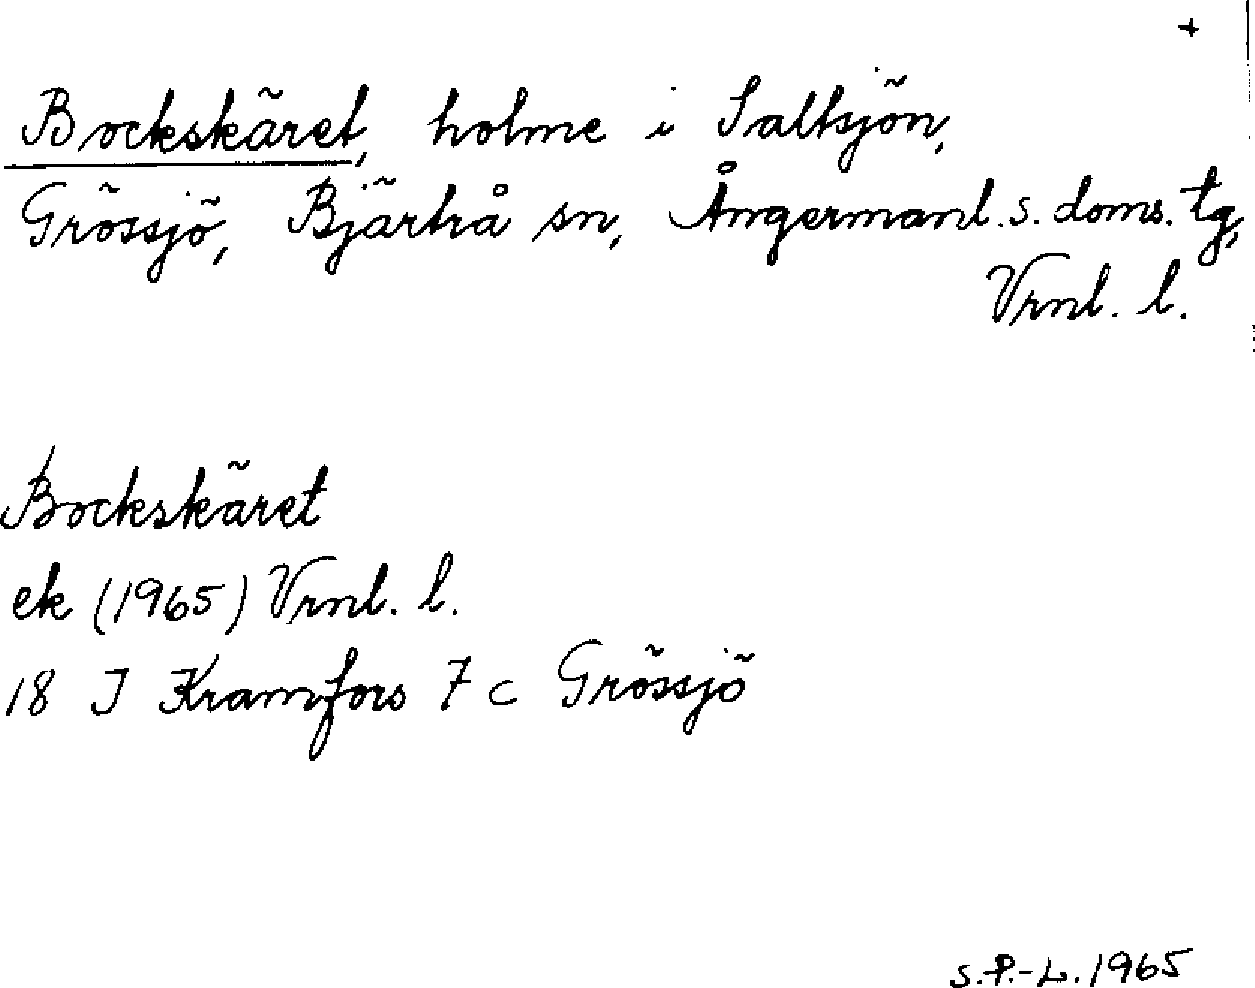 +
Bockskäret, holme i Saltsjön,
Grössjö, Bjärtrå sn, Ångermanl. s. doms. tg,
Vrnl. l.
Bockskäret
ek (1965) Vrnl. l.
18 I Kramfors 7 c Grössjö
S.P.-L. 1965